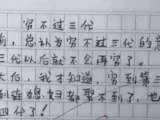 穷不过三代
前，总认为穷不过三代的意
三代以后就不会再穷了。
大后，我才知道，穷到第
到连媳妇都娶不到了，也
四代了！